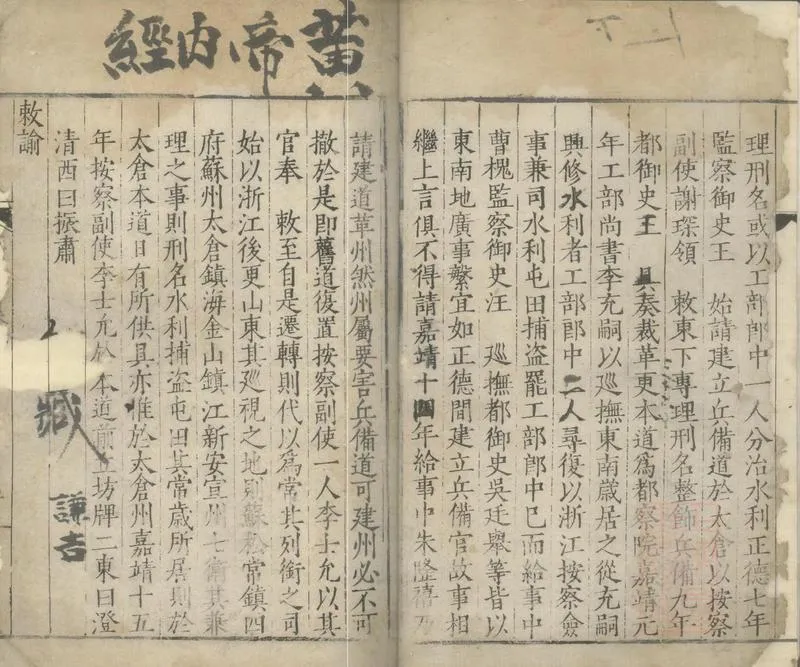 理刑名或以工部郎中一人分治水利正德七年
監察御史王 始請建立兵備道於太倉以按察
副使謝琛領 敕東下專理刑名整飾兵備九年
都御史王 具奏裁革更本道爲都察院嘉靖元
年工部尚書李充嗣以巡撫東南歲居之從充嗣
興修水利者工部郎中二人尋復以浙江按察僉
事兼司水利屯田捕盜罷工部郎中已而給事中
曹槐監察御史汪 巡撫都御史吳廷舉等皆以
東南地廣事繁宜如正德間建立兵備官故事相
繼上言俱不得請嘉靖十四年給事中朱隆禧
請建道革州然州屬要害兵備道可建州必不可
撤於是即舊道復置按察副使一人李士允以其
官奉 敕至自是遷轉則代以爲常其列銜之司
始以浙江後更山東其巡視之地則蘇松常鎮四
府蘇州太倉鎮海金山鎮江新安宣州七衛其兼
理之事則刑名水利捕盜屯田其常歲所居則於
太倉本道日有所供具亦惟於太倉州嘉靖十五
年按察副使李士允於本道前立坊牌二東曰澄
清西曰振肅
敕諭
黃帝內經
上下
謙吉